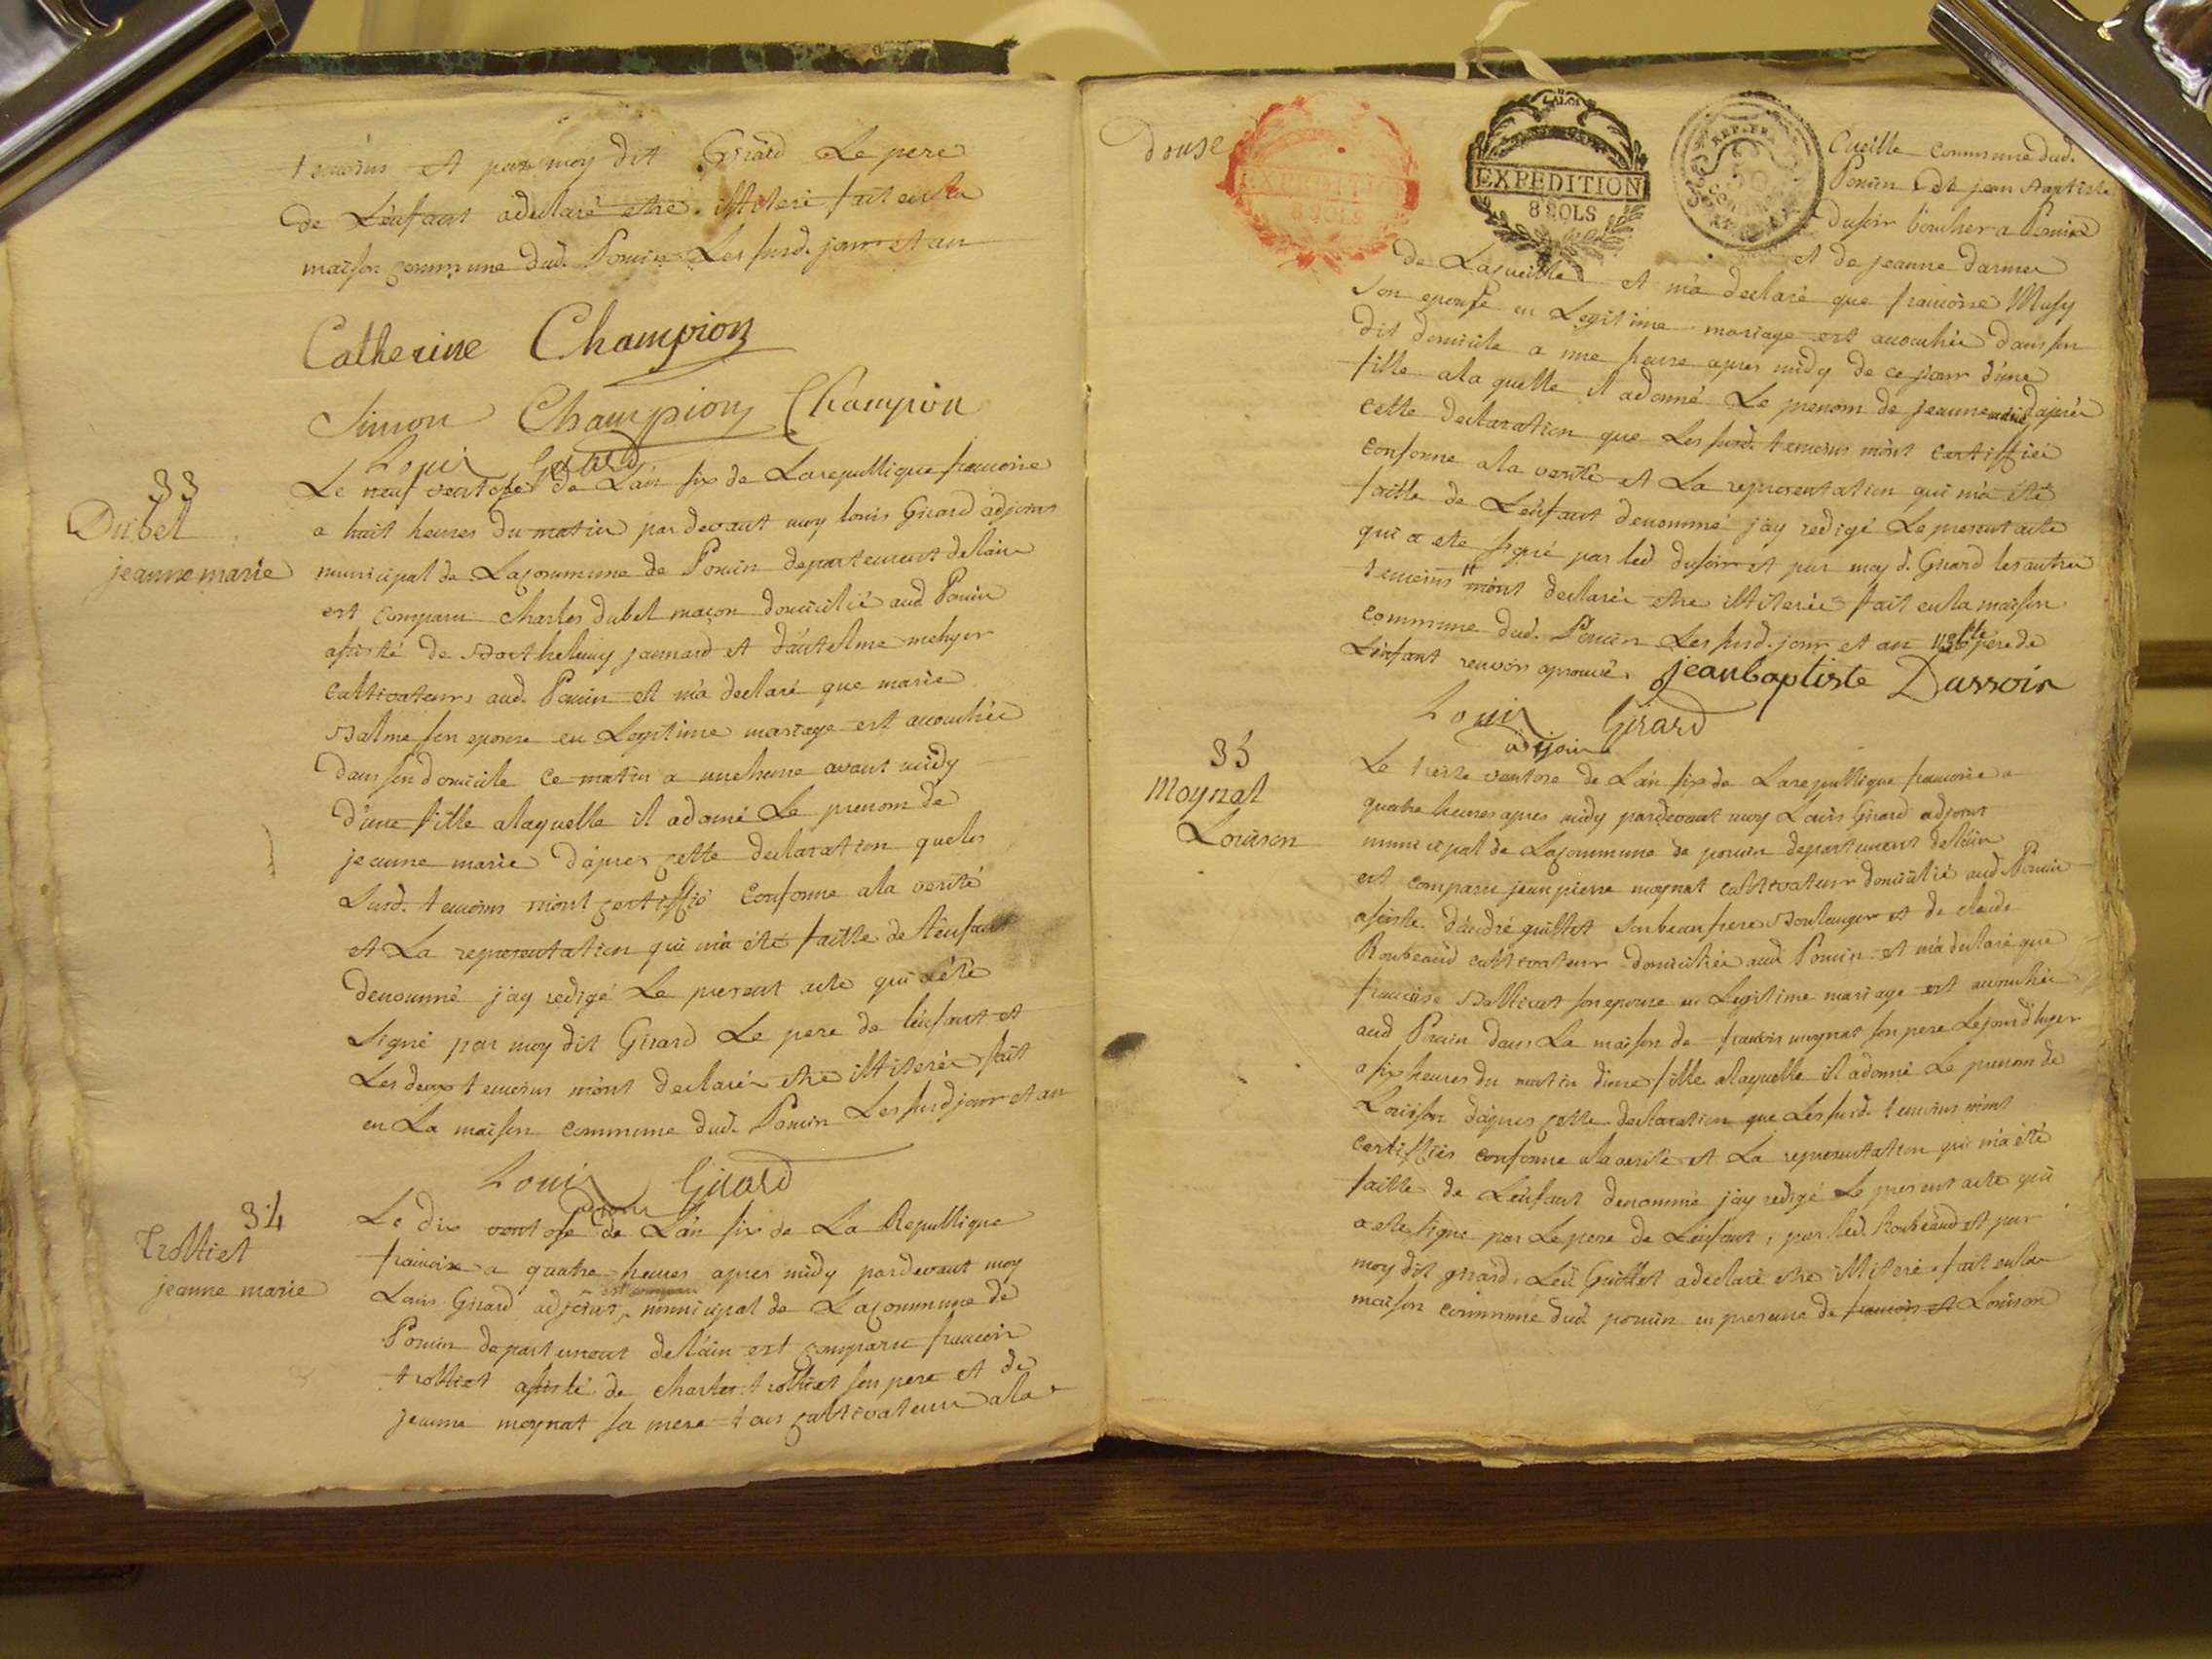 temoins et par moy dit Girard Le pere
de L'enfant adeclaré etre illiteré fait en la
maison commune dud. Poncin Les susd. jour et an
Catherine Champion
Simon Champion Champion
Louis Girard
33
Dubel
jeanne marie
Le neuf ventose de L'an six de La republique francoise
a huit heures du matin par devant moy louis Girard adjoint
municipal de La commune de Poncin departement de lain
est comparu charles dubel maçon domicilié aud Poncin
assisté de Barthelemy jannard et d'antelme
cultivateurs aud. Poncin et m'a declaré que marie
Balme son epouse en Legitime mariage est accouchée
dans son domicile ce matin a une heure avant midy
d'une fille a laquelle il a donné Le prenom de
jeanne marie d'apres cette declaration que les
susd. temoins m'ont certiffié conforme a la verité
et La representation qui m'a été faitte de l'enfant
denommé j'ay redigé Le present acte qui a été
signé par moy dit Girard Le pere de l'enfant et
Les deux temoins m'ont declarés etre illiterés fait
en La maison commune dud. Poncin Les susd jour et an
Louis Girard
adjoint
34
trolliet
jeanne marie
Le dix ventose de L'an six de La Republique
francoise a quatre heures apres midy par devant moy
Louis Girard adjoint est comparu municipal de La commune de
Poncin departement de lain est comparu francois
trolliet assisté de charles trolliet son pere et de
jeanne moynat sa mere tous cultivateurs a la
douse
EXPEDITION
8 SOLS
LA LOI
EXPEDITION
8 SOLS
REP. FRA.
50
CENTIMES
Cueille commune dud.
Poncin et de jean Baptiste
dusoir boucher a Poncin
et de jeanne darmer
de La cueille et m'a declaré que francoise Musy
son epouse en Legitime mariage est accouchée dans son
dit domicile a une heure apres midy de ce jour d'une
fille a la quelle il a donné Le prenom de jeanne marie d'apres
cette declaration que Les susd. temoins m'ont certiffiée
conforme a la verité et La representation qui m'a été
faitte de L'enfant denommé j'ay redigé Le present acte
qui a ete signé par led dusoir et par moy d. Girard les autres
temoins m'ont declarés etre illiterés fait en la maison
commune dud. Poncin Les susd. jour et an pere de
L'enfant renvois aprouvé. jean baptiste Dussoir
Louis Girard
adjoint
35
Moynat
Louison
Le treize ventose de L'an six de La republique francoise a
quatre heures apres midy pardevant moy Louis Girard adjoint
municipal de La commune de poncin departement de lain
est comparu jean pierre moynat cultivateur domicilié aud Poncin
assisté d'andré guillet son beau frere Boulanger et de claude
Roubeaud cultivateur domiciliés aud Poncin et m'a declaré que
francoise Ballivat son epouse en Legitime mariage est accouchée
aud Poncin dans La maison de francois moynat son pere Le jour d'hyer
a six heures du matin d'une fille a laquelle il a donné Le prenom de
Louison d'apres cette declaration que Les susd. temoins m'ont
certiffiés conforme a la verité et La representation qui m'a été
faitte de L'enfant denommé j'ay redigé Le present acte qui
a ete signé par Le pere de L'enfant, par led. Roubeaud et par
moy dit girard, Led. Guillet a declaré etre illiteré. fait en la
maison commune dud. poncin en presence de francois et Louison